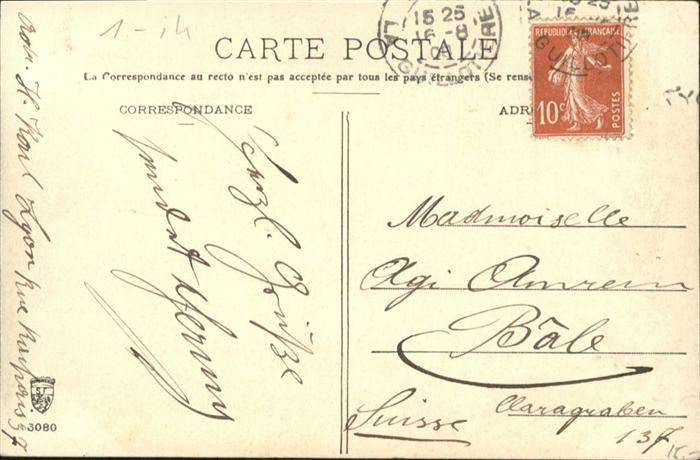 1-
CARTE POSTALE
La Correspondance au recto n'est pas acceptée par tous les pays étrangers (Se rense
CORRESPONDANCE
ADR
15 25
16-8
LA GUILLOTIÈRE
REPUBLIQUE FRANÇAISE
10c
POSTES
Herzl. Grüße
sendet
H. Karl Lyon Rue 37
Mademoiselle
Agi Amrein
Bâle
Suisse
Claragraben
137
3080